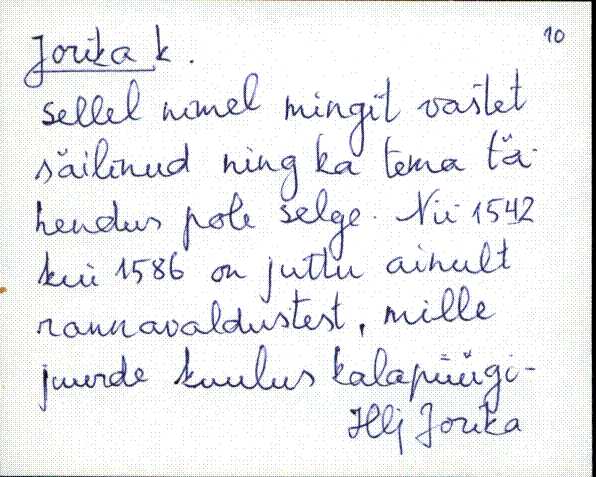 10
Jorika k.
sellel nimel mingit vastet
säilinud ning ka tema tä-
hendus pole selge. Nii 1542
kui 1586 on juttu ainult
rannavaldustest, mille
juurde kuulus kalapüügi-
Hlj Jorika